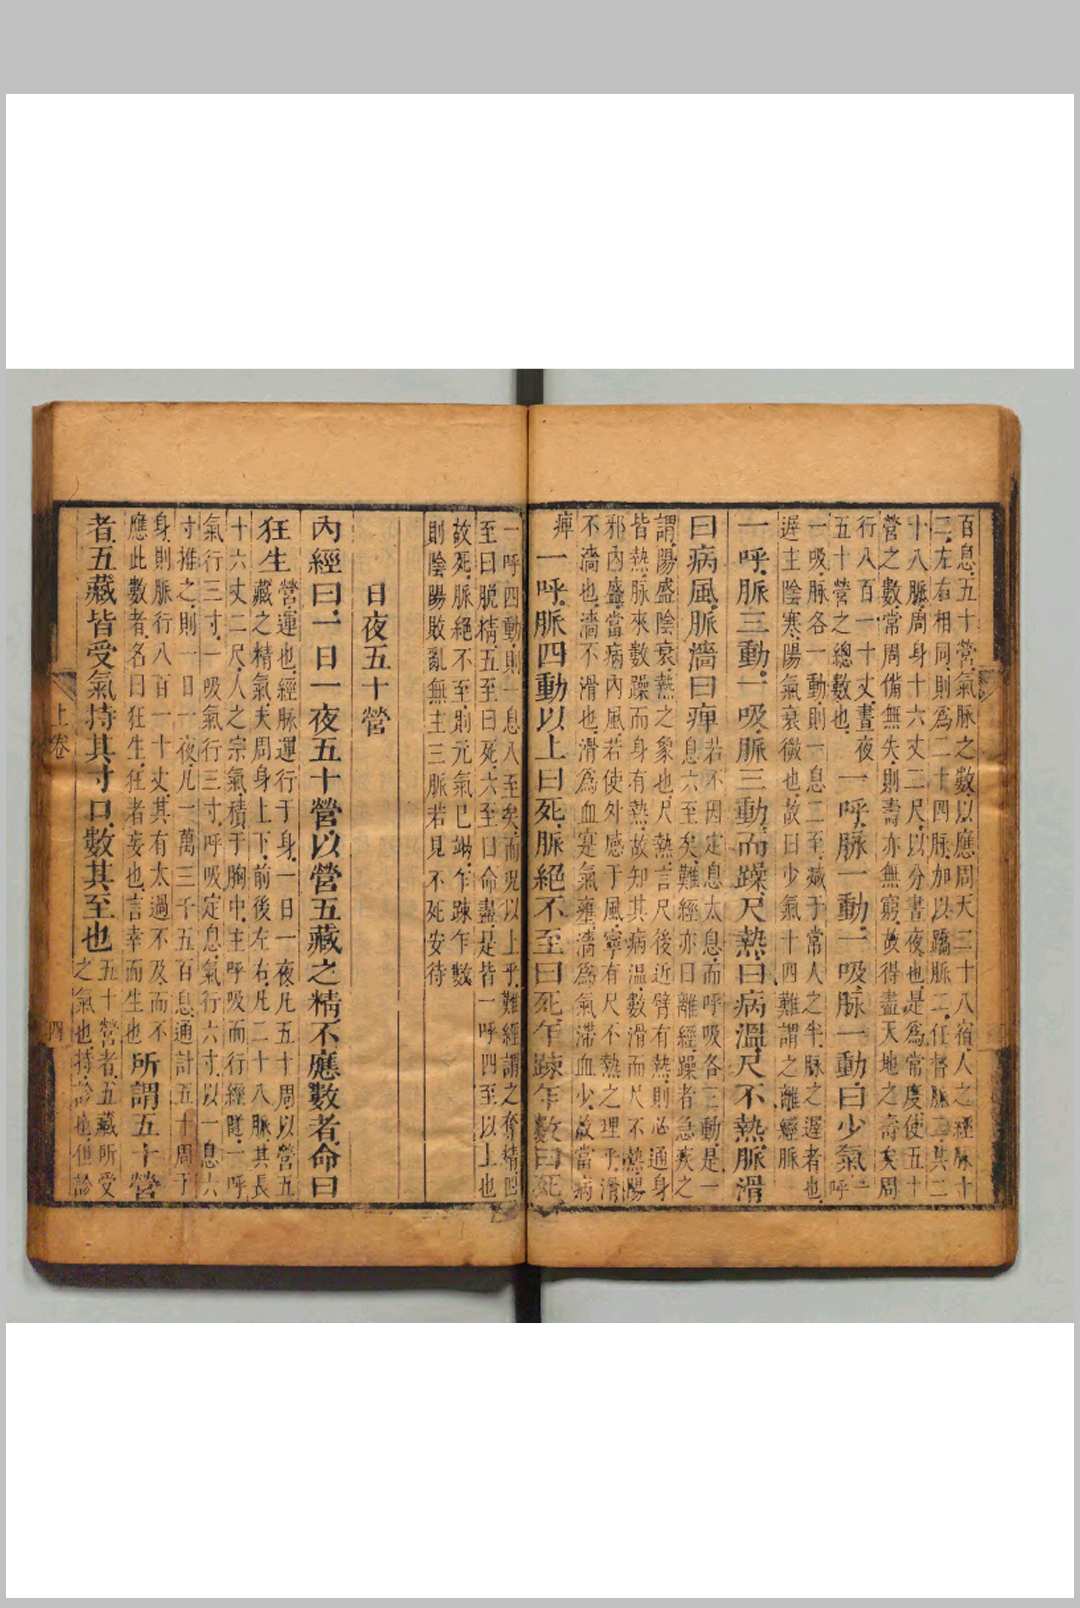 百息五十營氣脈之數以應周天二十八宿人之經脉十
二左右相同則為二十四脉加以蹻脈二任督脈二共二
十八脈周身十六丈二尺以分晝夜也是為常度使五十
營之數常周備無失則壽亦無窮故得盡天地之壽矣周
行八百一十丈晝夜
五十營之總數也
一呼脈一動一吸脈一動曰少氣
一
呼
一吸脉各一動則一息二至減于常人之半脉之遲者也
遲主陰寒陽氣衰微也故曰少氣十四難謂之離經脈
一呼脈三動一吸脈三動而躁尺熱曰病溫尺不熱脈滑
曰病風脈濇曰痺
若不因定息太息而呼吸各三動是一
息六至矣難經亦曰離經躁者急疾之
謂陽盛陰衰熱之象也尺熱言尺後近臂有熱則必通身
皆熱脈來數躁而身有熱故知其病溫數滑而尺不熱陽
邪內盛當病內風若使外感于風寧有尺不熱之理乎滑
不濇也濇不滑也滑為血寔氣壅濇為氣滯血少故當病
痺
一呼脈四動以上曰死脈絕不至曰死乍踈乍數曰死
一呼四動則一息八至矣而況以上乎難經謂之奪精四
至曰脫精五至曰死六至曰命盡是皆一呼四至以上也
故死脈絕不至則元氣已竭乍踈乍數
則陰陽敗亂無主三脈若見不死安待
日夜五十營
內經曰一日一夜五十營以營五藏之精不應數者命曰
狂生
營運也經脈運行于身一日一夜凡五十周以營五
藏之精氣夫周身上下前後左右凡二十八脈其長
十六丈二尺人之宗氣積于胸中主呼吸而行經隧一呼
氣行三寸一吸氣行三寸呼吸定息氣行六寸以一息六
寸推之則一日一夜凡一萬三千五百息通計五十周于
身則脈行八百一十丈其有太過不及而不
應此數者名曰狂生狂者妄也言幸而生也
所謂五十營
者五藏皆受氣持其寸口數其至也
五十營者五藏所受
之氣也持診也但診
上卷
四